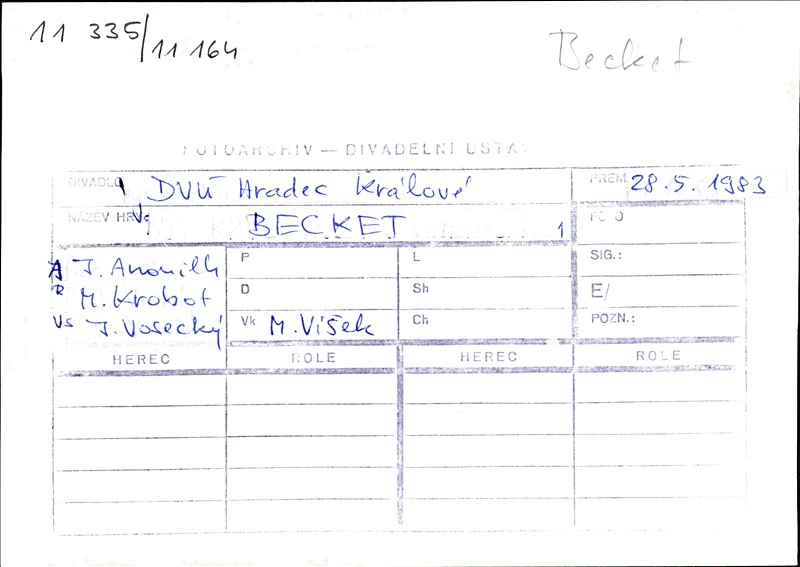 11 335/11 164
Becket
FOTOARCHIV — DIVADELNÍ ÚSTAV
DIVADLO DVÚ Hradec Králové PREM. 28.5.1983
NÁZEV HRY BECKET 1 FOTO
A J. Anouilh P L SIG.:
R M. Krobot D Sh E/
Vs J. Vosecký Vk M. Víšek Ch POZN.:
HEREC ROLE HEREC ROLE